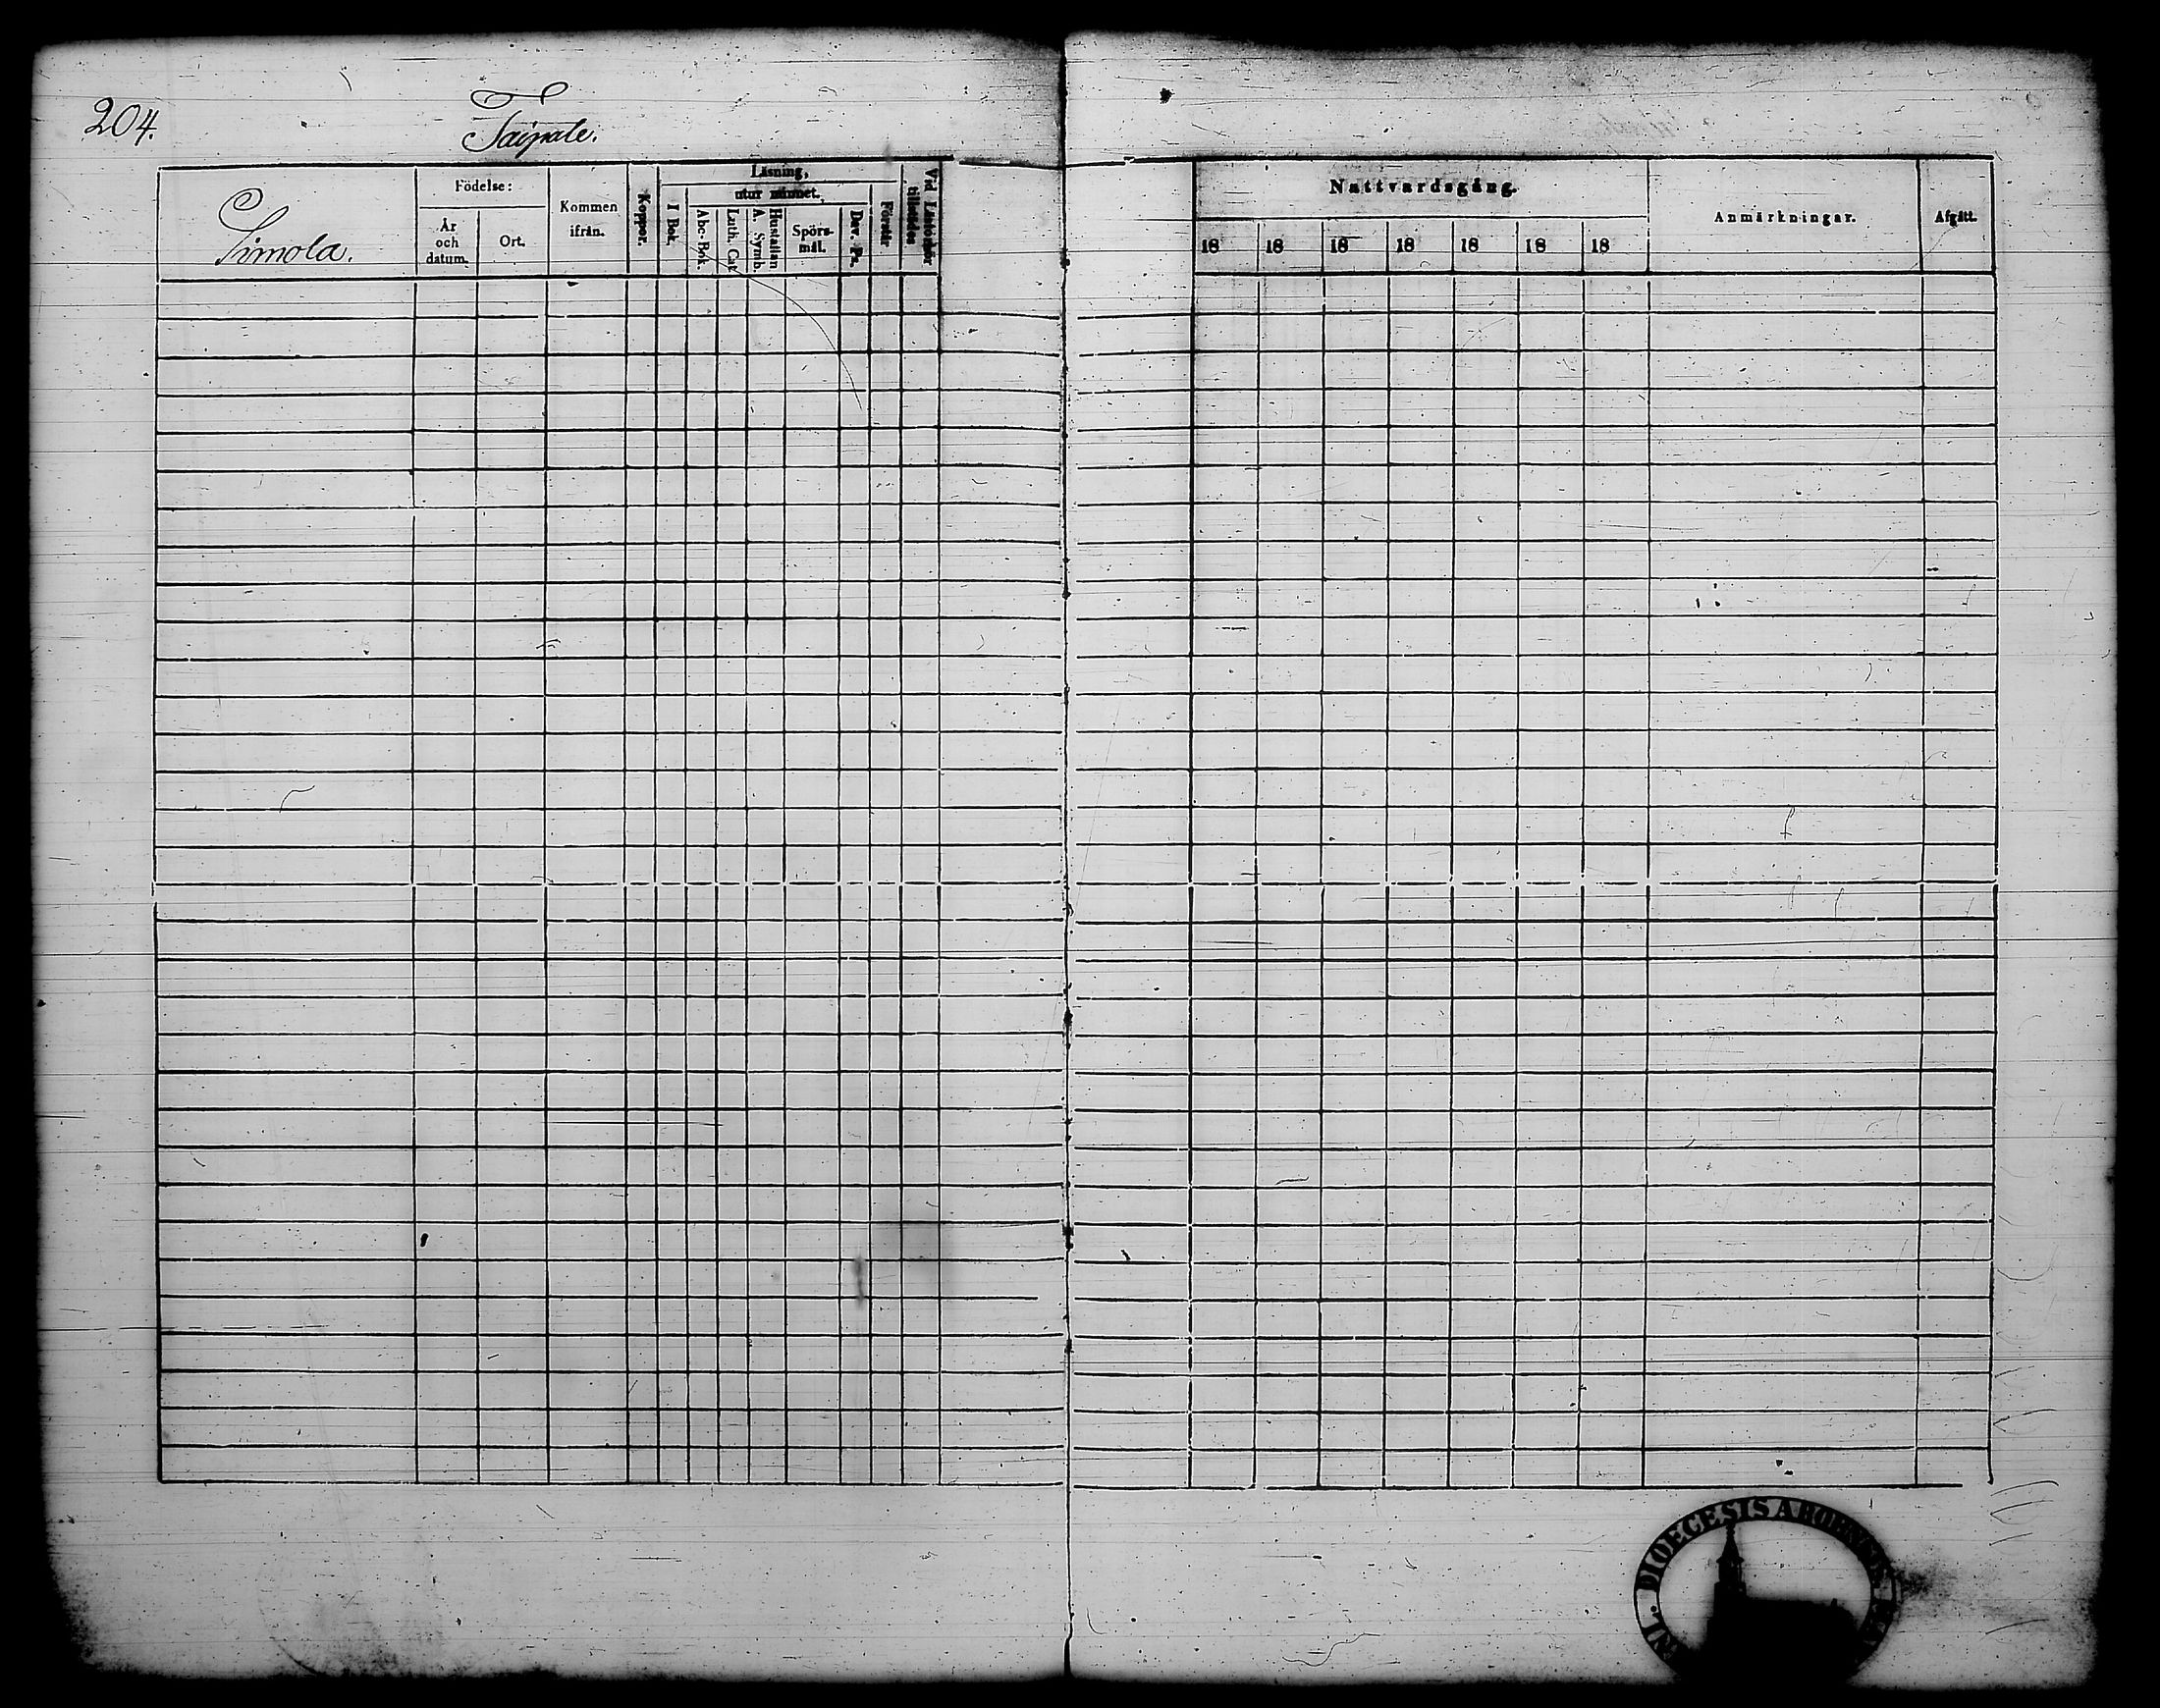 204.
Taipale.
Simola.
Födelse:
År
och
datum.
Ort.
Kommen
ifrån.
Koppor.
Läsning,
utur minnet.
I Bok.
Abc-Bok.
Luth. Cat
A. Symb.
Hustaflan
Spörs-
mål.
Dav. Ps.
Förstår
Vid Läsförhör
tillstädes
Nattvardsgång.
18 18 18 18 18 18 18
Anmärkningar.
Afgått.
DIOECESIS ABOENSIS